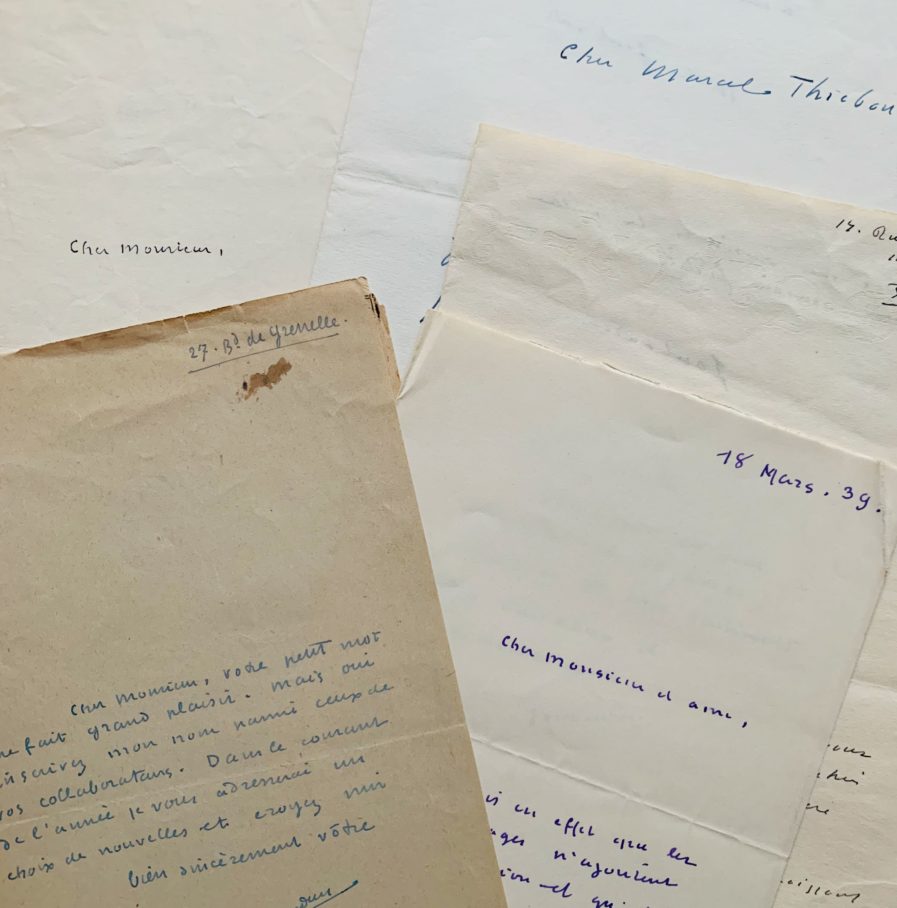 Cher Marcel Thiebau
Cher Monsieur,
14. Ru
27. Bd de Grenelle.
18 Mars. 39.
Cher Monsieur, votre petit mot
me fait grand plaisir. Mais oui
inscrivez mon nom parmi ceux de
vos collaborateurs. Dans le courant
de l'année je vous adresserai un
choix de nouvelles et croyez moi
bien sincèrement vôtre
Cher Monsieur et ami,
is en effet que les
ages n'ajoutent
ion et qui